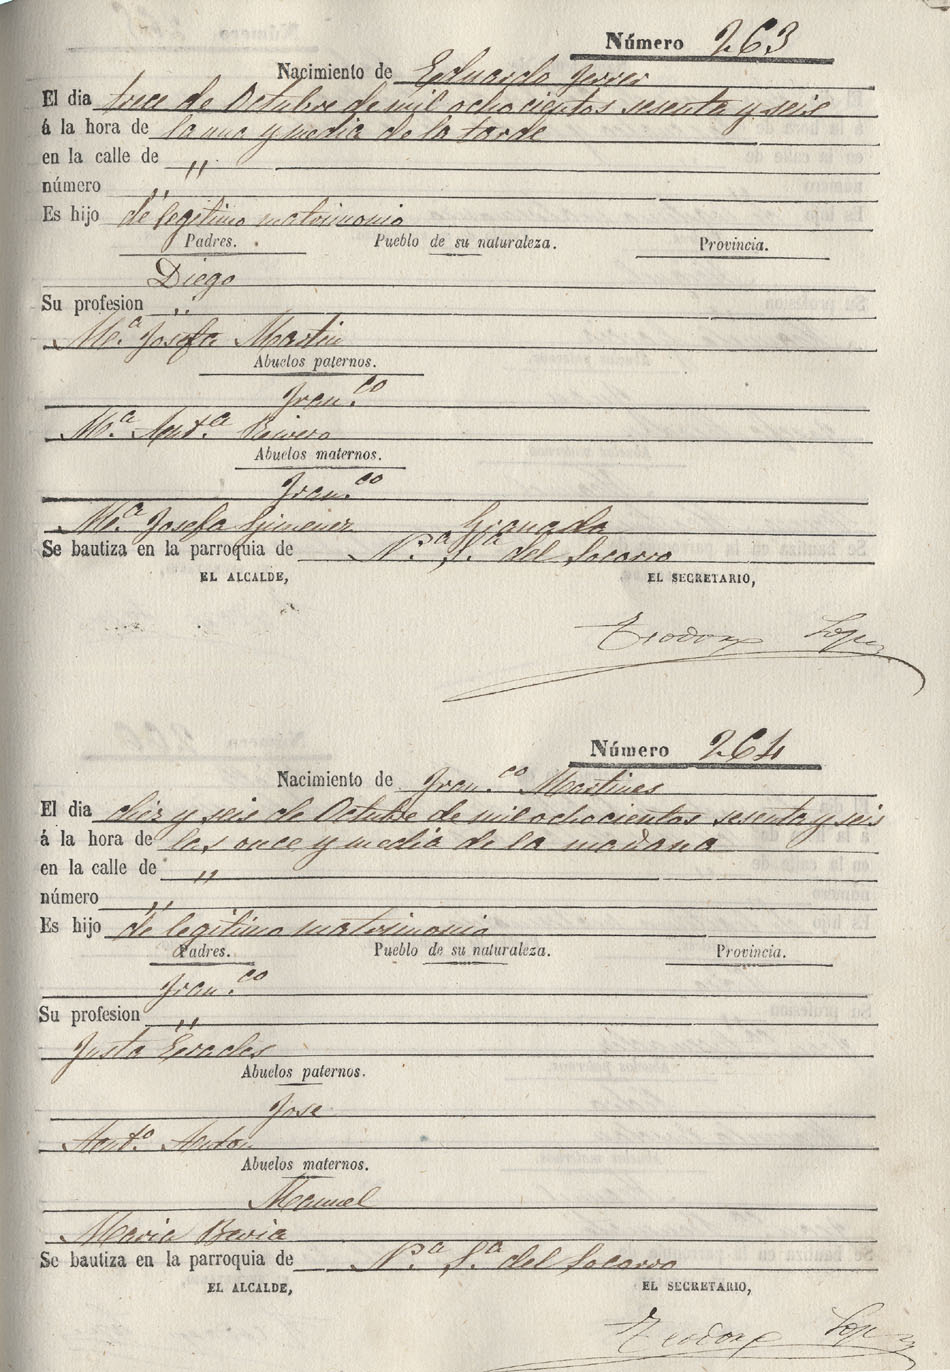 Número 263
Nacimiento de Eduardo Ferrer
El dia trece de Octubre de mil ochocientos sesenta y seis
á la hora de la una y media de la tarde
en la calle de "
número "
Es hijo de legitimo matrimonio
Padres. Pueblo de su naturaleza. Provincia.
Diego
Su profesion "
M.ª Josefa Martin
Abuelos paternos.
Fran.co
M.ª Ant.ª Rivero
Abuelos maternos.
Fran.co
M.ª Josefa Gimenez Granada
Se bautiza en la parroquia de N.ª S.ª del Socorro
EL ALCALDE, EL SECRETARIO,
Teodoro Lopez
Número 264
Nacimiento de Fran.co Martines
El dia diez y seis de Octubre de mil ochocientos sesenta y seis
á la hora de las once y media de la mañana
en la calle de "
número "
Es hijo de legitimo matrimonio
Padres. Pueblo de su naturaleza. Provincia.
Fran.co
Su profesion "
Justa
Abuelos paternos.
Jose
Ant.ª Anton
Abuelos maternos.
Manuel
Maria
Se bautiza en la parroquia de N.ª S.ª del Socorro
EL ALCALDE, EL SECRETARIO,
Teodoro Lopez